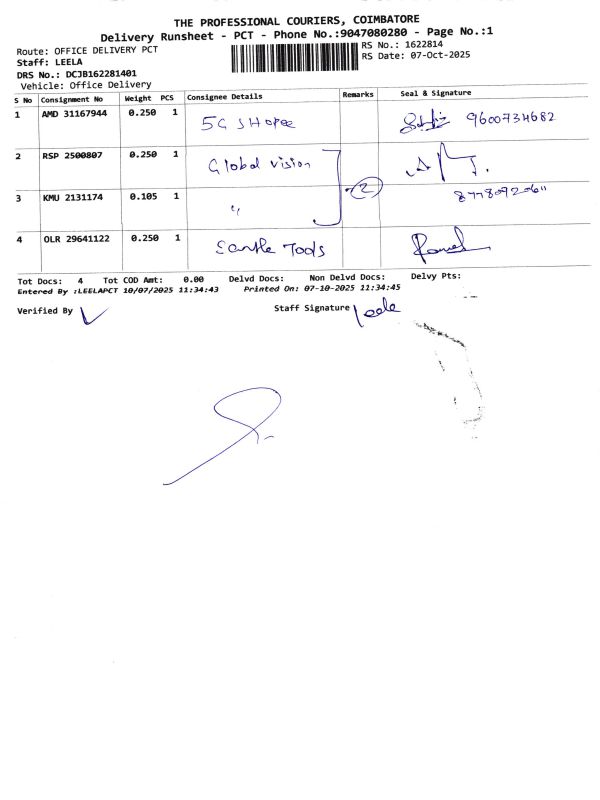 THE PROFESSIONAL COURIERS, COIMBATORE
Delivery Runsheet - PCT - Phone No.:9047080280 - Page No.:1
Route: OFFICE DELIVERY PCT
RS No.: 1622814
Staff: LEELA
RS Date: 07-Oct-2025
DRS No.: DCJB162281401
Vehicle: Office Delivery
S No Consignment No Weight PCS Consignee Details Remarks Seal & Signature
1 AMD 31167944 0.250 1 5G SHopee 9600734682
2 RSP 2500807 0.250 1 Global vision
(2)
3 KMU 2131174 0.105 1 "
4 OLR 29641122 0.250 1 Tools
Tot Docs: 4 Tot COD Amt: 0.00 Delvd Docs: Non Delvd Docs: Delvy Pts:
Entered By :LEELAPCT 10/07/2025 11:34:43 Printed On: 07-10-2025 11:34:45
Verified By
Staff Signature Leele